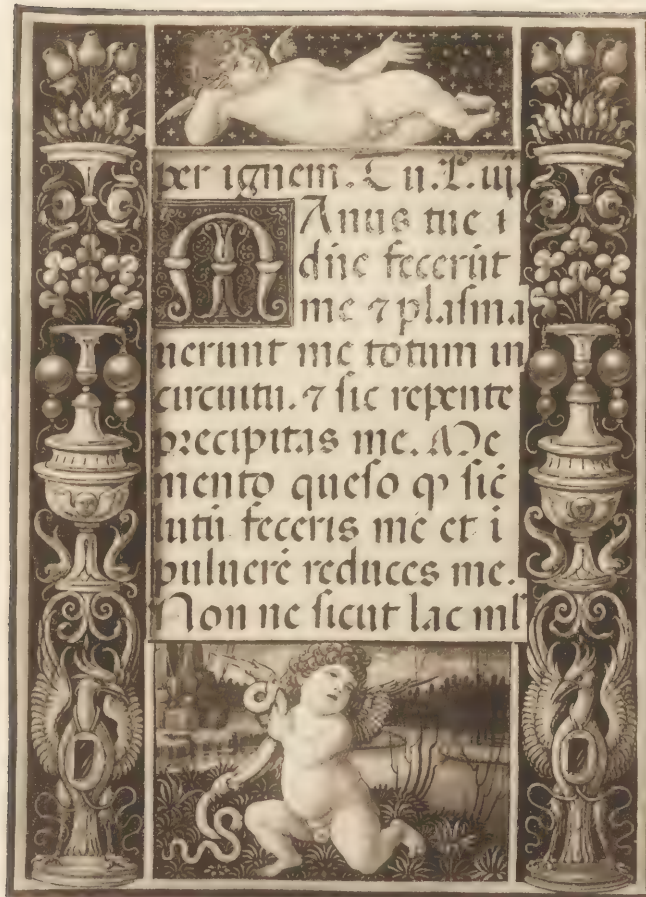 per ignem. Tu. L. iij.
Manus tue i
dñe fecerūt
me ⁊ plasma
uerunt me totum in
circuitu. ⁊ sic repente
precipitas me. Me
mento queso ꝙ sic̄
lutū feceris me et i
puluerē reduces me.
Non ne sicut lac mls